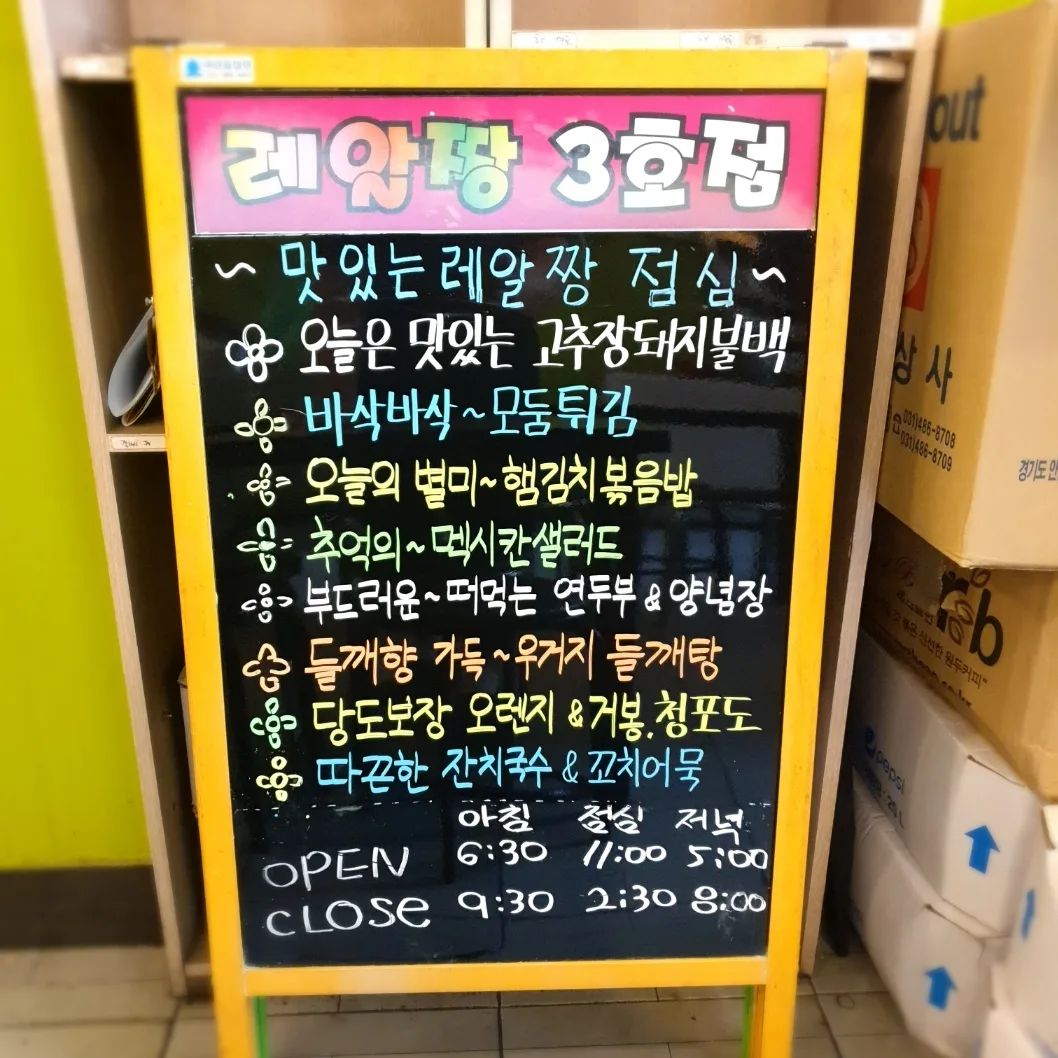 레알짱 3호점
~ 맛있는 레알짱 점심 ~
오늘은 맛있는 고추장돼지불백
바삭바삭~모둠튀김
오늘의 별미~햄김치볶음밥
추억의~멕시칸샐러드
부드러운~떠먹는 연두부 & 양념장
들깨향 가득~우거지 들깨탕
당도보장 오렌지 & 거봉.청포도
따끈한 잔치국수 & 꼬치어묵
아침 점심 저녁
OPEN 6:30 11:00 5:00
CLOSE 9:30 2:30 8:00
out
상사
☎ 031)486-8708
031)486-8709
경기도 안
rb
신선한 원두커피"
pepsi